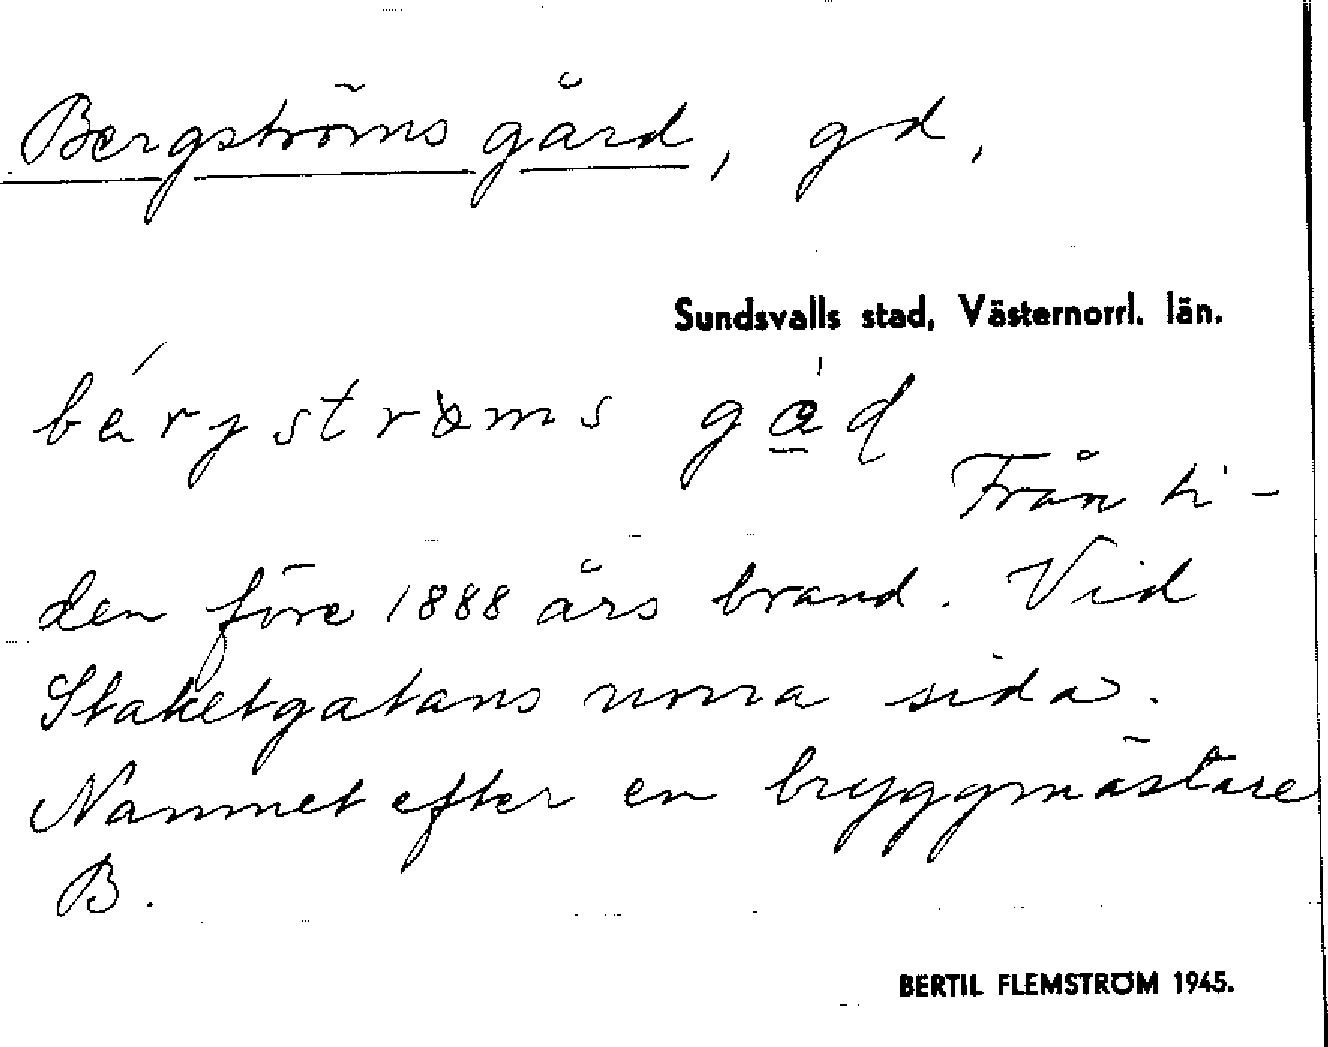 Bergströms gård, gd,
Sundsvalls stad, Västernorrl. län.
bérgstrøms gå̱d
Från ti-
den före 1888 års brand. Vid
Staketgatans norra sida.
Namnet efter en bryggmästare
B.
BERTIL FLEMSTRÖM 1945.